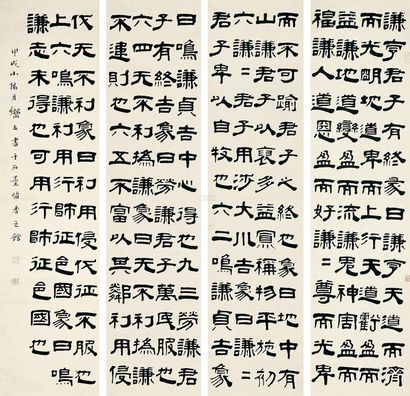 謙亨君子有終彖曰謙亨天道下濟
而光明地道卑而上行天道虧盈而
益謙地道變盈而流謙鬼神害盈而
福謙人道惡盈而好謙謙尊而光卑
而不可踰君子之終也象曰地中有
山謙君子以裒多益寡稱物平施初
六謙謙君子用涉大川吉象曰謙謙
君子卑以自牧也六二鳴謙貞吉象
曰鳴謙貞吉中心得也九三勞謙君
子有終吉象曰勞謙君子萬民服也
六四无不利撝謙象曰无不利撝謙
不違則也六五不富以其鄰利用侵
伐无不利象曰利用侵伐征不服也
上六鳴謙利用行師征邑國象曰鳴
謙志未得也可用行師征邑國也
甲戌小陽月書于石墨香之館